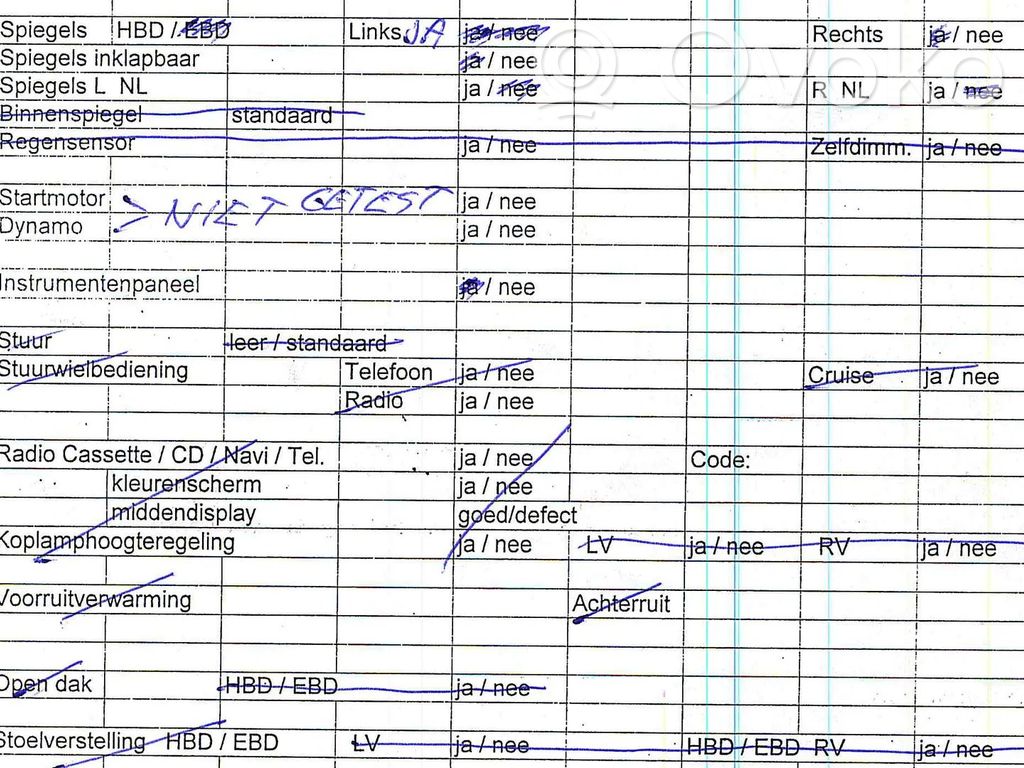 Spiegels HBD / EBD Links JA ja / nee Rechts ja / nee
Spiegels inklapbaar ja / nee
Spiegels L NL ja / nee R NL ja / nee
Binnenspiegel standaard
Regensensor ja / nee Zelfdimm. ja / nee
Startmotor NIET GETEST ja / nee
Dynamo ja / nee
Instrumentenpaneel ja / nee
Stuur leer / standaard
Stuurwielbediening Telefoon ja / nee Cruise ja / nee
Radio ja / nee
Radio Cassette / CD / Navi / Tel. ja / nee Code:
kleurenscherm ja / nee
middendisplay goed/defect
Koplamphoogteregeling ja / nee LV ja / nee RV ja / nee
Voorruitverwarming Achterruit
Open dak HBD / EBD ja / nee
Stoelverstelling HBD / EBD LV ja / nee HBD / EBD RV ja / nee
Ovoko